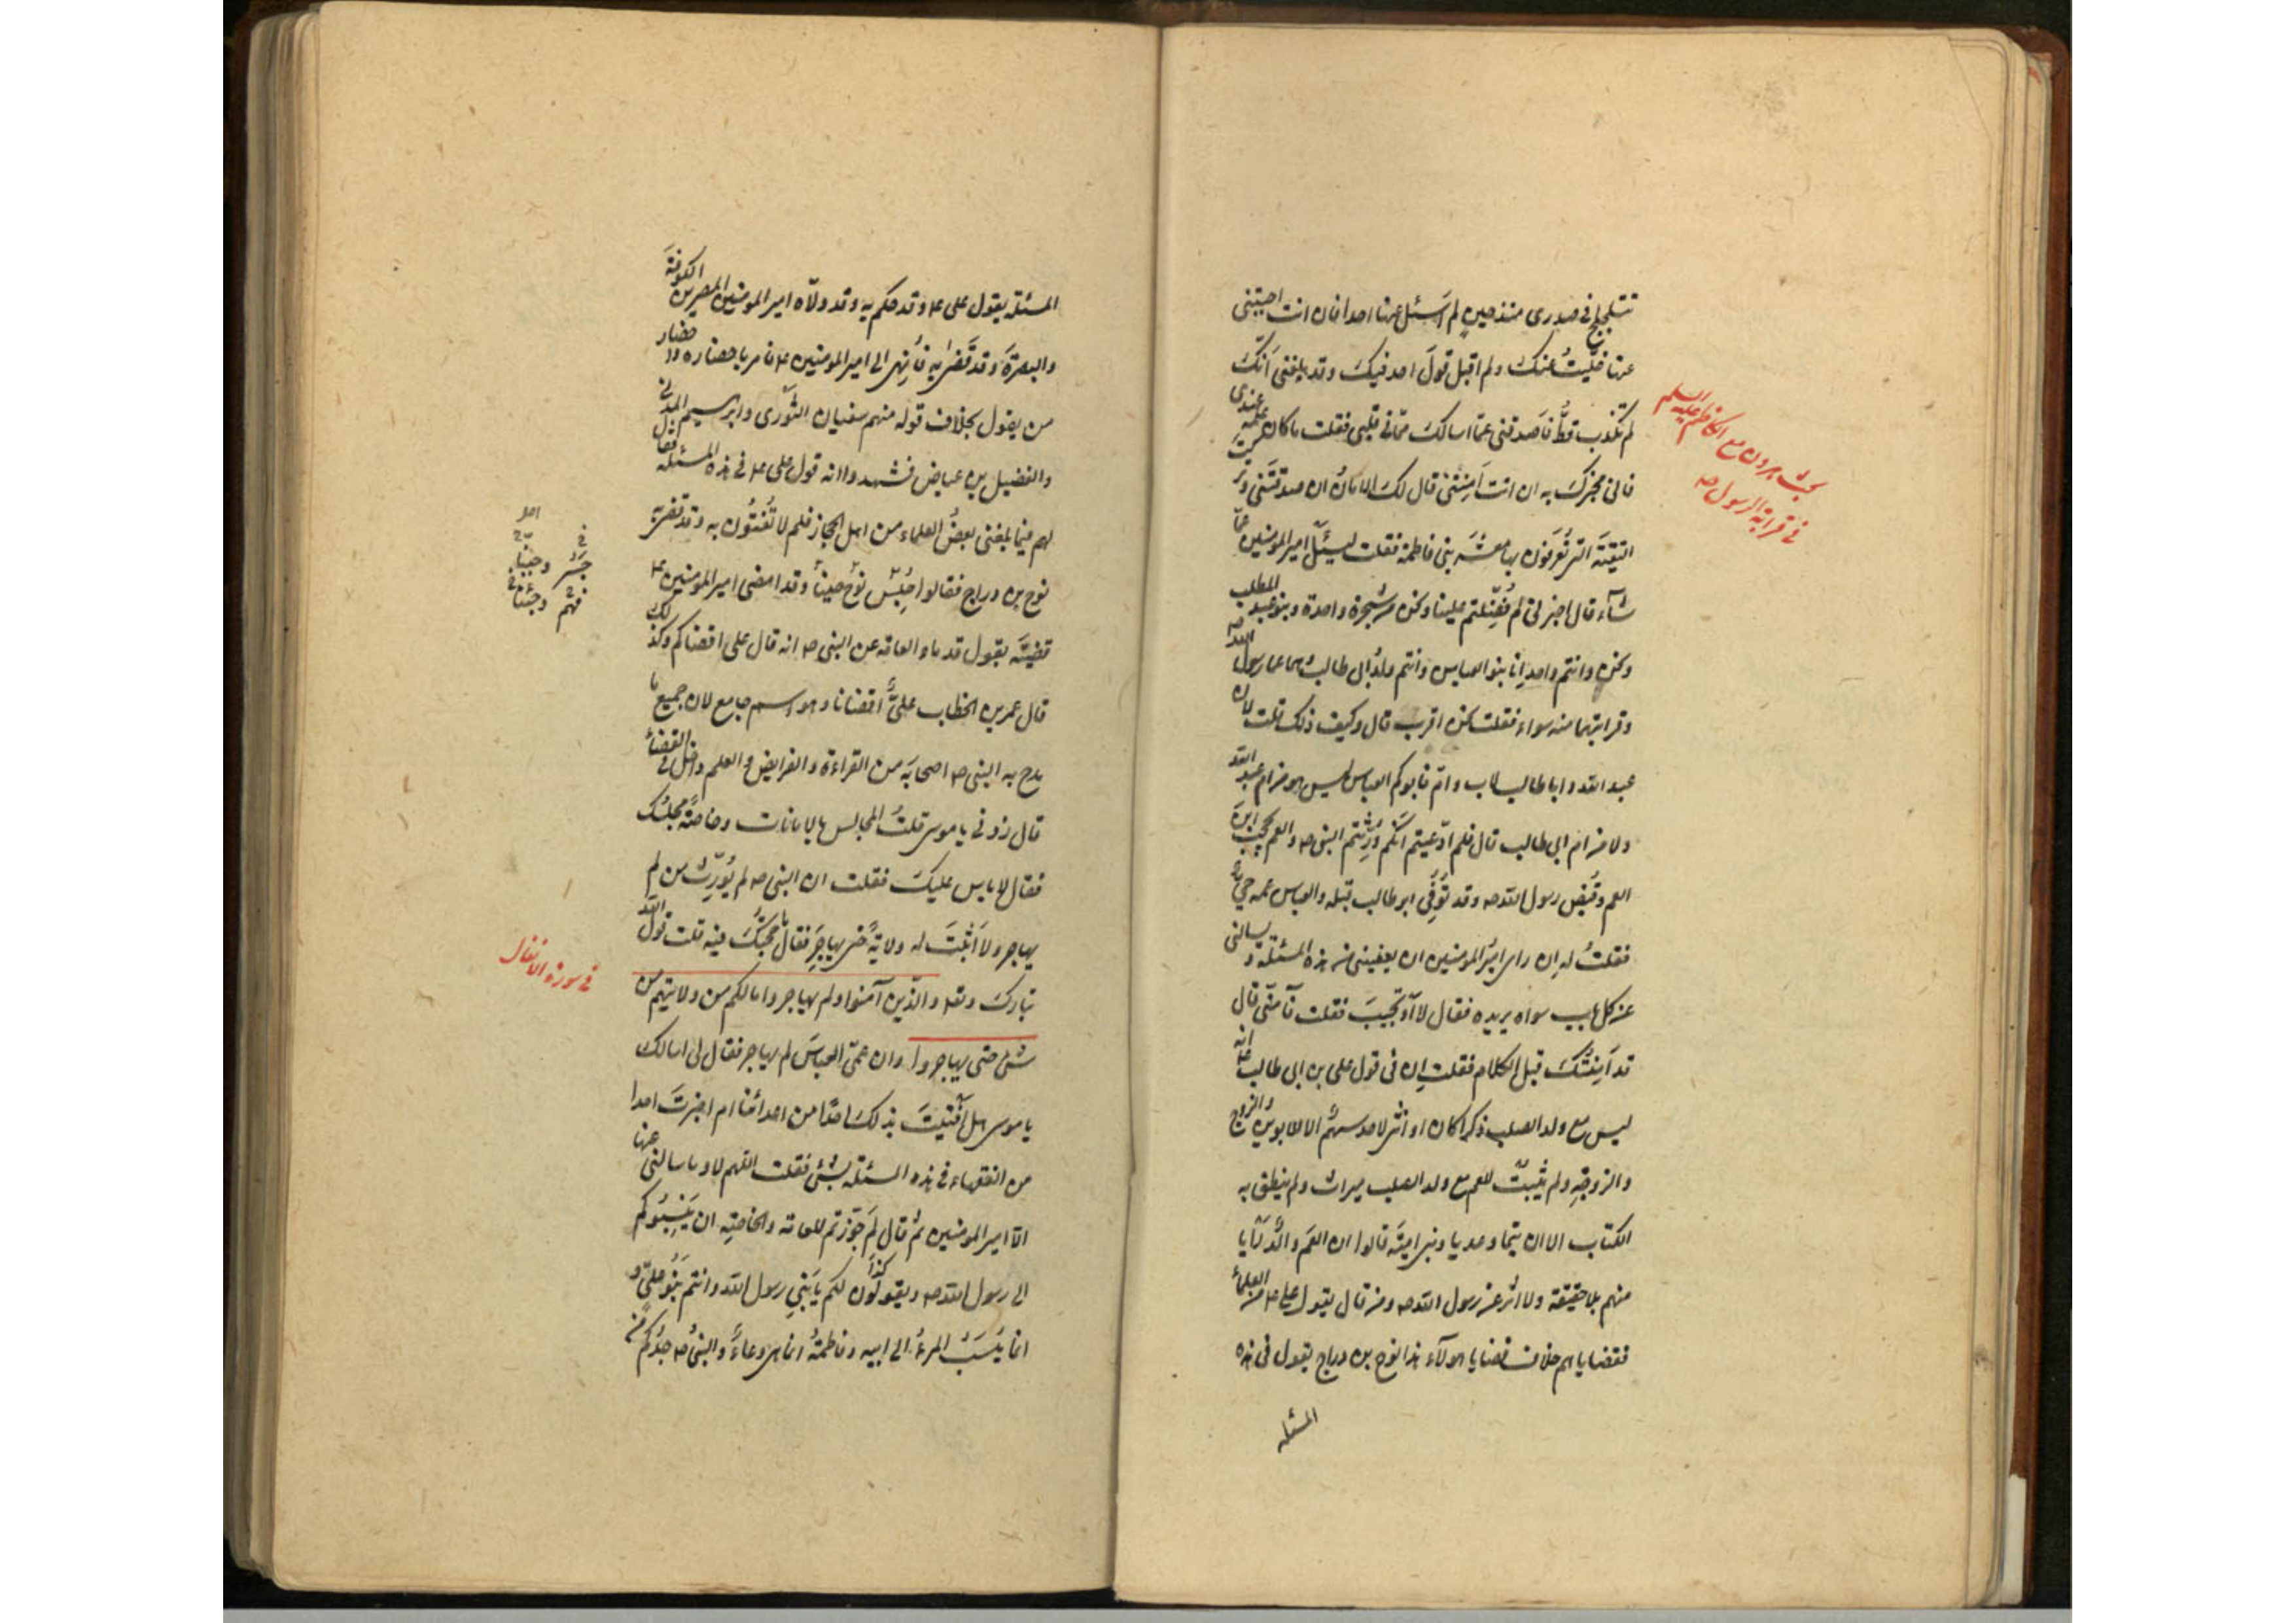 تتلجلج فى صدرى منذ حين لم اَسئل عنها احدا فان انت اجبتنى
عنها خلّيتُ عنك ولم اقبل قولَ احد فيكَ وقد بلغنى اَنّكَ
لم تكذب قطُّ فاَصدقنى عمّا اسالك ممّا فى قلبى فقلت ما كان علمه عندى
فانى مخبركَ به ان انت اَمِنتَنى قال لكَ الامانُ ان صدقتَنى وتركتَ
التقيّةَ التى تُعرَفون بها معشَر بنى فاطمة فقلت ليسئل امير المومنين عمّا
شآء قال اخبرنى لم فُضِّلتم علينا ونحن من شجرة واحدة وبنو عبد المطلب
ونحن وانتم واحد اِنا بنو العباس وانتم ولدُ ابى طالب وهما عما رسول الله ص
وقرابتهما منه سواء فقلت نحن اقرب قال وكيف ذلك قلت لان
عبد الله وابا طالب لاب وامّ فابوكم العباس ليس هو من ام عبد الله
ولا من ام ابى طالب قال فلم ادّعيتم انّكم وَرِثتم النبى ص والعم يحجب ابنَ
العم وقُبِض رسول الله ص وقد تُوفّى ابو طالب قبله والعباس عمه حىّ
فقلتُ له ان راى اميرُ المومنين ان يعفينى من هذه المسئلة ويسالنى
عن كل باب سواه يريده فقال لا او تجيبَ فقلت فآمنّى قال
قد آمنتُكَ قبل الكلام فقلت ان فى قول على بن ابى طالب ع انه
ليس مع ولد الصلب ذكرا كان او انثى لاحد سهمٌ الا للابوين والزوج
والزوجةِ ولم يثبتْ للعم مع ولد الصلب ميراث ولم ينطق به
الكتاب الا ان تيما وعديا وبنى اميّه قالوا ان العَم والدٌ رَأيا
منهم بلا حقيقة ولا اثر عن رسول الله ص ومن قال بقول على ع من العلماءِ
فقضاياهم خلاف قضايا هولآء هذا نوح بن دراج يقول فى هذه
المسئله
بحث هرون مع الكاظم عليه السلم
فى قرابة الرسول ص
المسئلة بقول على ع وقد حكم به وقد ولّاه امير المومنين المصرين الكوفةَ
والبصرَةَ وقد قَضى به فاُنهى الى امير المومنين ع فامر باحضاره واحضار
من يقول بخلاف قوله منهم سفيان الثّورى وابرهيم المدنى
والفضيل بن عياض فشهدوا انه قول على ع فى هذه المسئلة فقال
لهم فيما بلغنى بعضُ العلماء من اهل الحجاز فلم لا تُفتُون به وقد قضى به
نوح بن دراج فقالوا جَسَر نوح وجَبُنّا وقد امضى امير المومنين ع
قضيّتَه بقول قدماء العامّه عن النبى ص انه قال على اقضاكم وكذلك
قال عمر بن الخطاب علىٌّ اقضانا وهو اسم جامع لان جميع ما
مدح به النبى ص اصحابَه من القراءة والفرايض والعلم داخل فى القضاءِ
قال زدنى يا موسى قلتُ المجالس بالامانات وخاصةً مجلسُك
فقال لا باس عليكَ فقلت ان النبى ص لم يُورّث من لم
يهاجر ولا اَثبَتَ له ولايةً حتى يهاجِرَ فقال ما حجّتُكَ فيه قلت قول الله
تبارك وتعالى والذين آمنوا ولم يهاجروا ما لكم من ولايتهم من
شئ حتى يهاجروا وان عمّى العباسَ لم يهاجر فقال لى اسالك
يا موسى هل اَفتيتَ بذلكَ احدًا من اعدائنا ام اخبرتَ احدا
من الفقهاء فى هذه المسئلة بشئ فقلت اللهم لا وما سالنى عنها
الّا امير المومنين ثم قال لِمَ جوّزتم للعامة والخاصةِ ان يَنسِبُوكم
الى رسول الله ص ويقولون لكم يا بنى رسول الله وانتم بَنُو علىٍّ و
انما يُنسَبُ المرءُ الى ابيه وفاطمةُ انما هى وعاءٌ والنبىُّ ص جدُّكم من
فى سورة الانفال